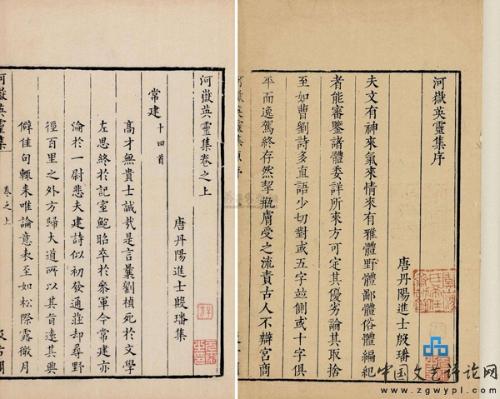 河嶽英靈集序
唐丹陽進士殷璠
夫文有神來氣來情來有雅體野體鄙體俗體編紀
者能審鑒諸體委詳所來方可定其優劣論其取捨
至如曹劉詩多直語少切對或五字並側或十字俱
平而逸駕終存然挈瓶膚受之流責古人不辯宮商
河嶽英靈集卷之上
唐丹陽進士殷璠集
常建 十四首
高才無貴士誠哉是言曩劉楨死於文學
左思終於記室鮑昭卒於參軍今常建亦
淪於一尉悲夫建詩似初發通莊却尋野
徑百里之外方歸大道所以其旨遠其興
僻佳句輒來唯論意表至如松際露微月
河嶽英靈集 卷之上
中国文艺评论网
www.zgwypl.com